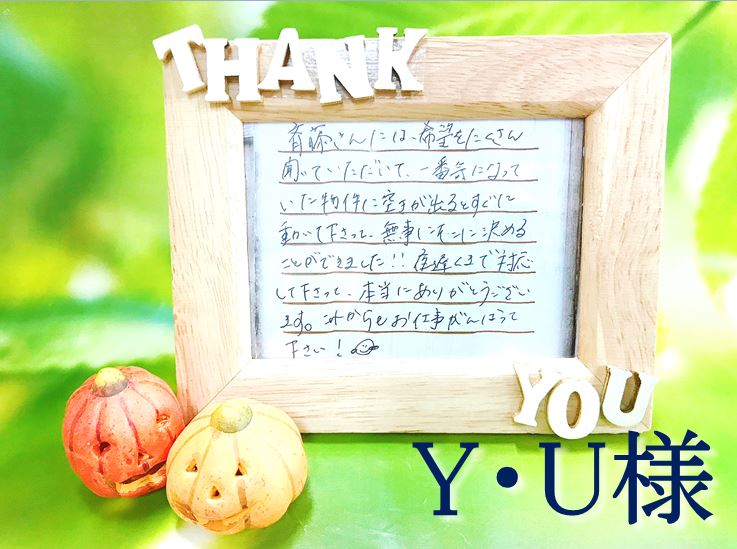 THANK
斉藤さんには、希望をたくさん
聞いていただいて、一番気になって
いた物件に空きが出るとすぐに
動いて下さって、無事にそこに決める
ことができました!! 夜遅くまで対応
して下さって、本当にありがとうござい
ます。これからもお仕事がんばって
下さい!
YOU
Y・U様